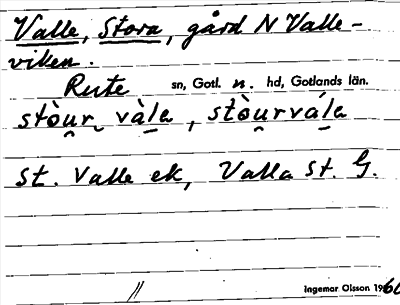 Valle, Stora, gård N Valle-
viken.
Rute sn, Gotl. n. hd, Gotlands län.
stòu̯r vàla, stòu̯rvála
St. Valle ek, Valla St. G.
// Ingemar Olsson 1960